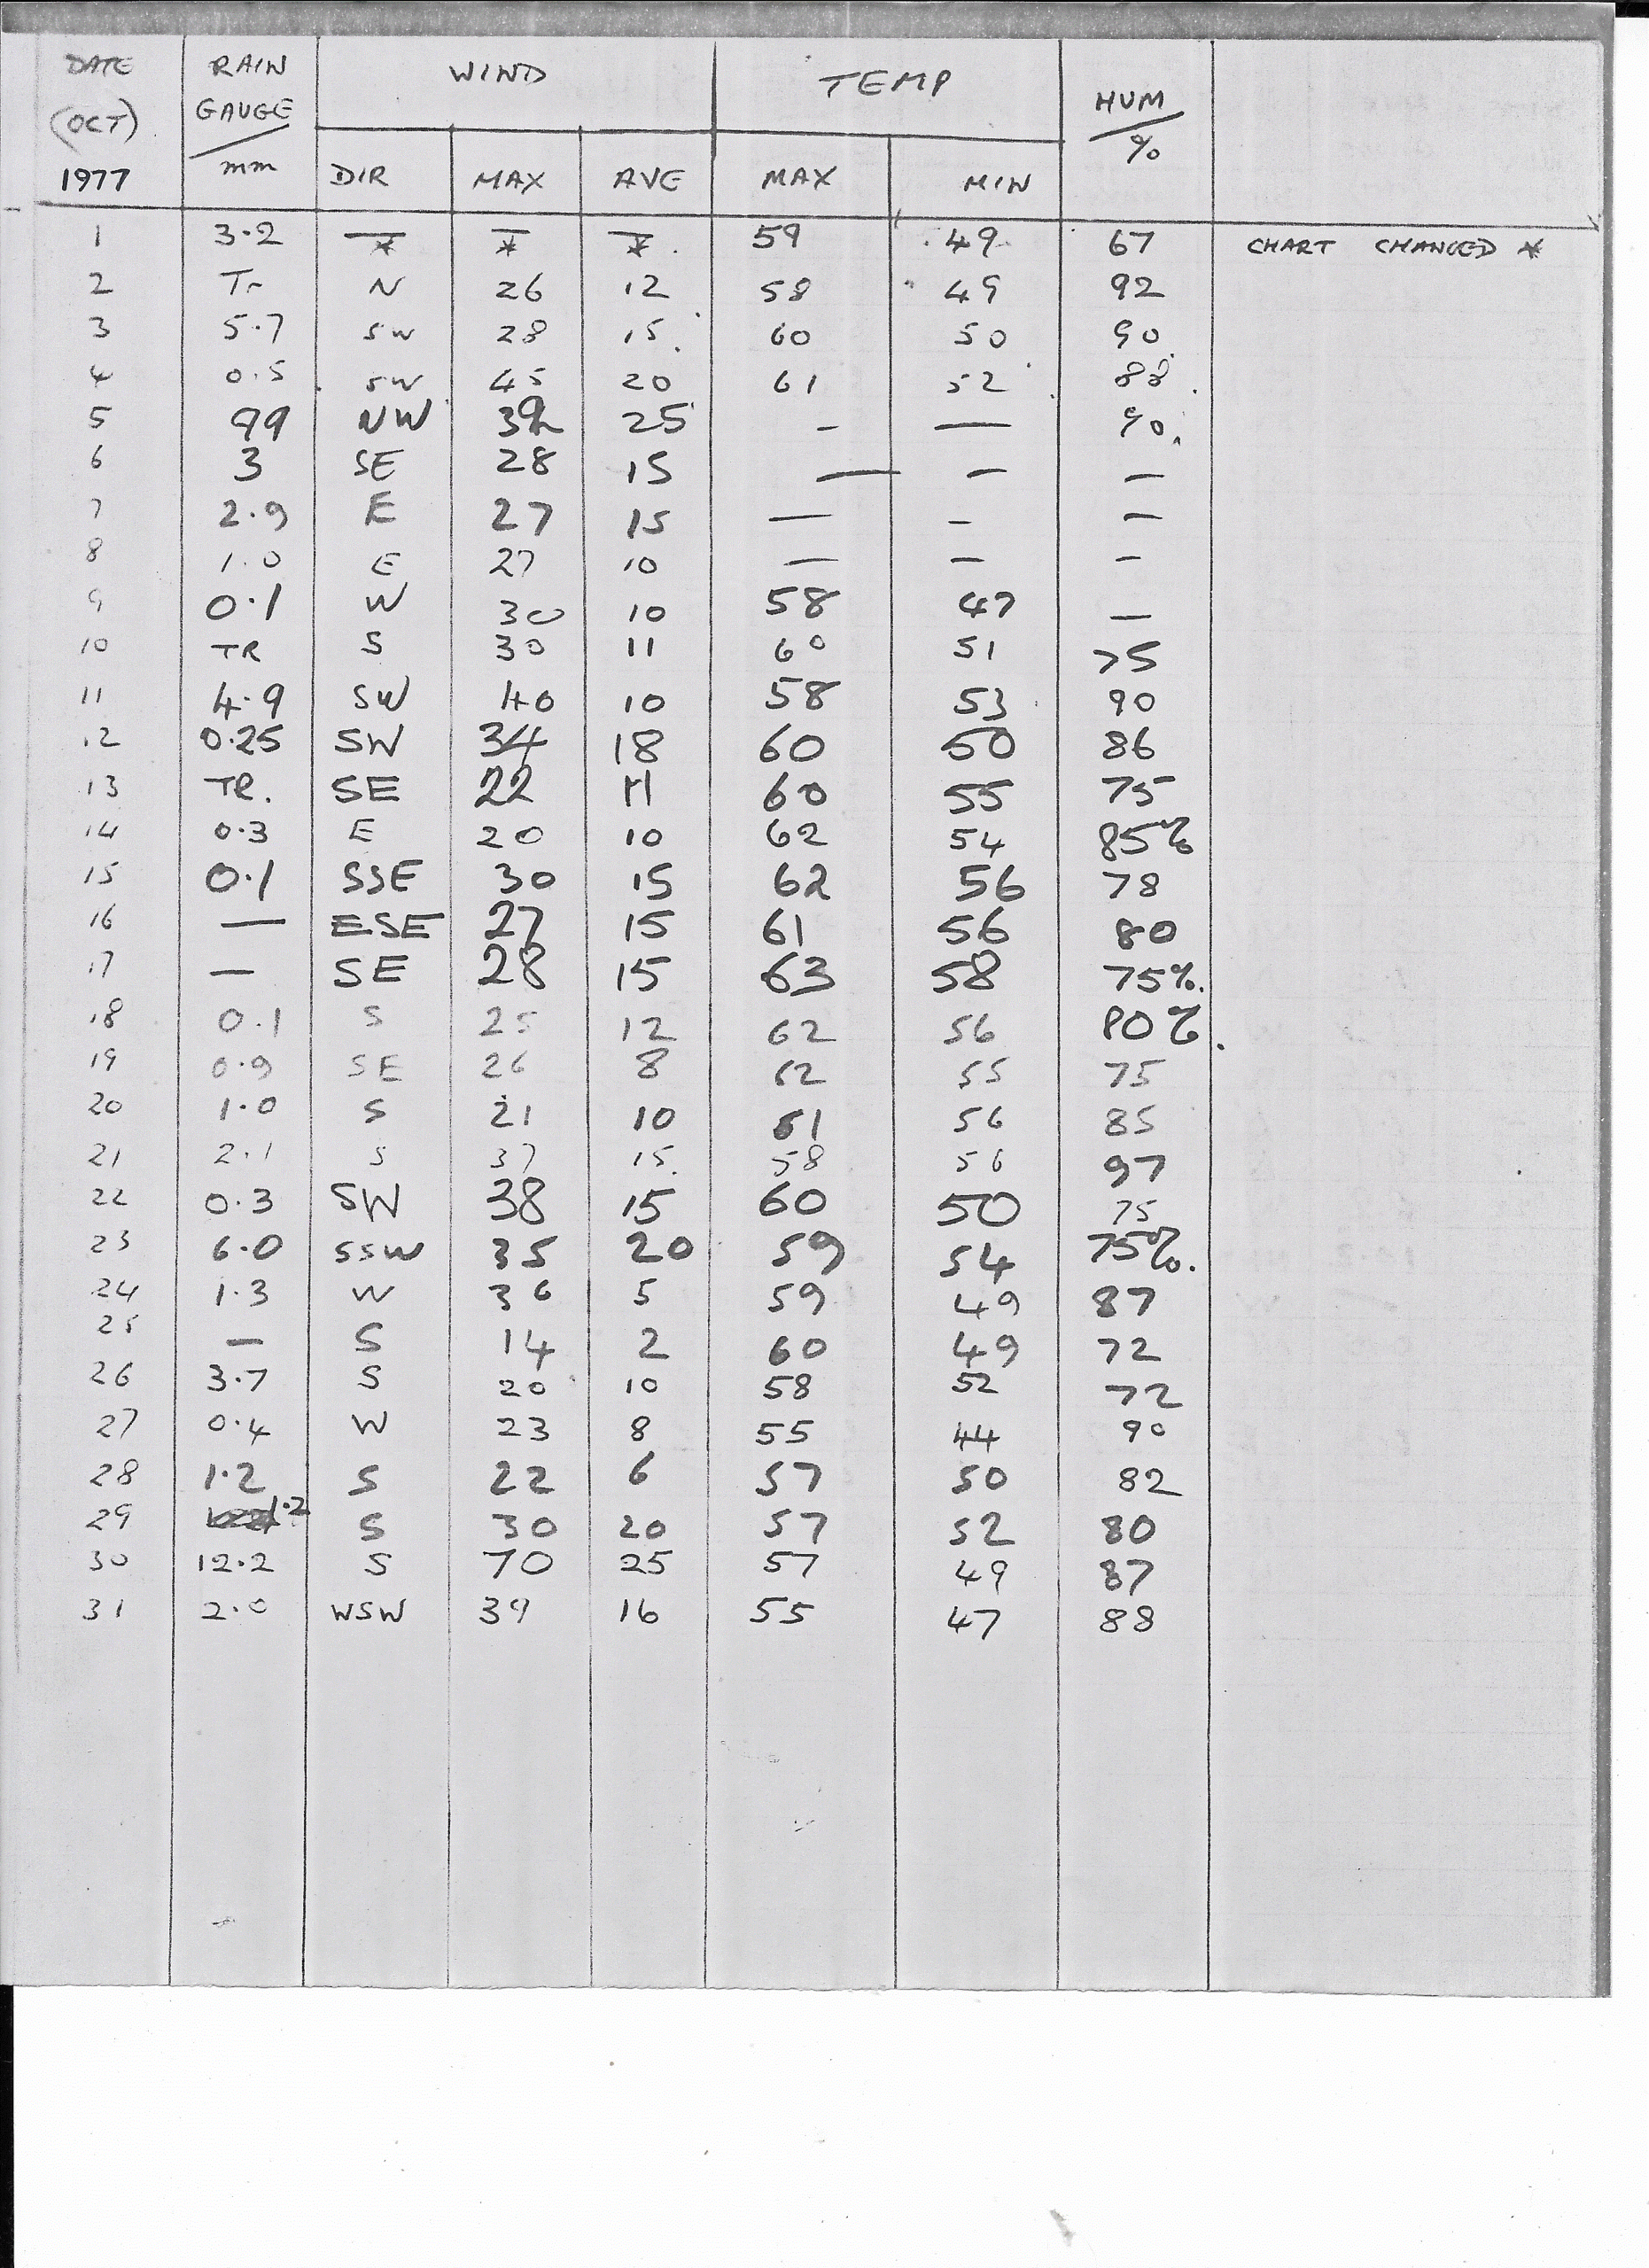 DATE RAIN WIND TEMP HUM
(OCT) GAUGE %
1977 mm DIR MAX AVE MAX MIN
1 3.2 — * — * — * 59 49 67 CHART CHANGED *
2 Tr N 26 12 58 49 92
3 5.7 SW 28 15 60 50 90
4 0.5 SW 45 20 61 52 88
5 99 NW 25 - — 90
6 3 SE 28 15 — — —
7 2.9 E 27 15 — - —
8 1.0 E 27 10 — — -
9 0.1 W 30 10 58 47 —
10 TR S 30 11 60 51 75
11 4.9 SW 40 10 58 53 90
12 0.25 SW 34 18 60 50 86
13 TR. SE 22 11 60 55 75
14 0.3 E 20 10 62 54 85%
15 0.1 SSE 30 15 62 56 78
16 — ESE 27 15 61 56 80
17 — SE 28 15 63 58 75%.
18 0.1 S 25 12 62 56 80%
19 0.9 SE 26 8 62 55 75
20 1.0 S 21 10 61 56 85
21 2.1 S 37 15 58 56 97
22 0.3 SW 38 15 60 50 75
23 6.0 SSW 35 20 59 54 75%.
24 1.3 W 36 5 59 49 87
25 — S 14 2 60 49 72
26 3.7 S 20 10 58 52 72
27 0.4 W 23 8 55 44 90
28 1.2 S 22 6 57 50 82
29 1.2 S 30 20 57 52 80
30 12.2 S 70 25 57 49 87
31 2.0 WSW 39 16 55 47 88